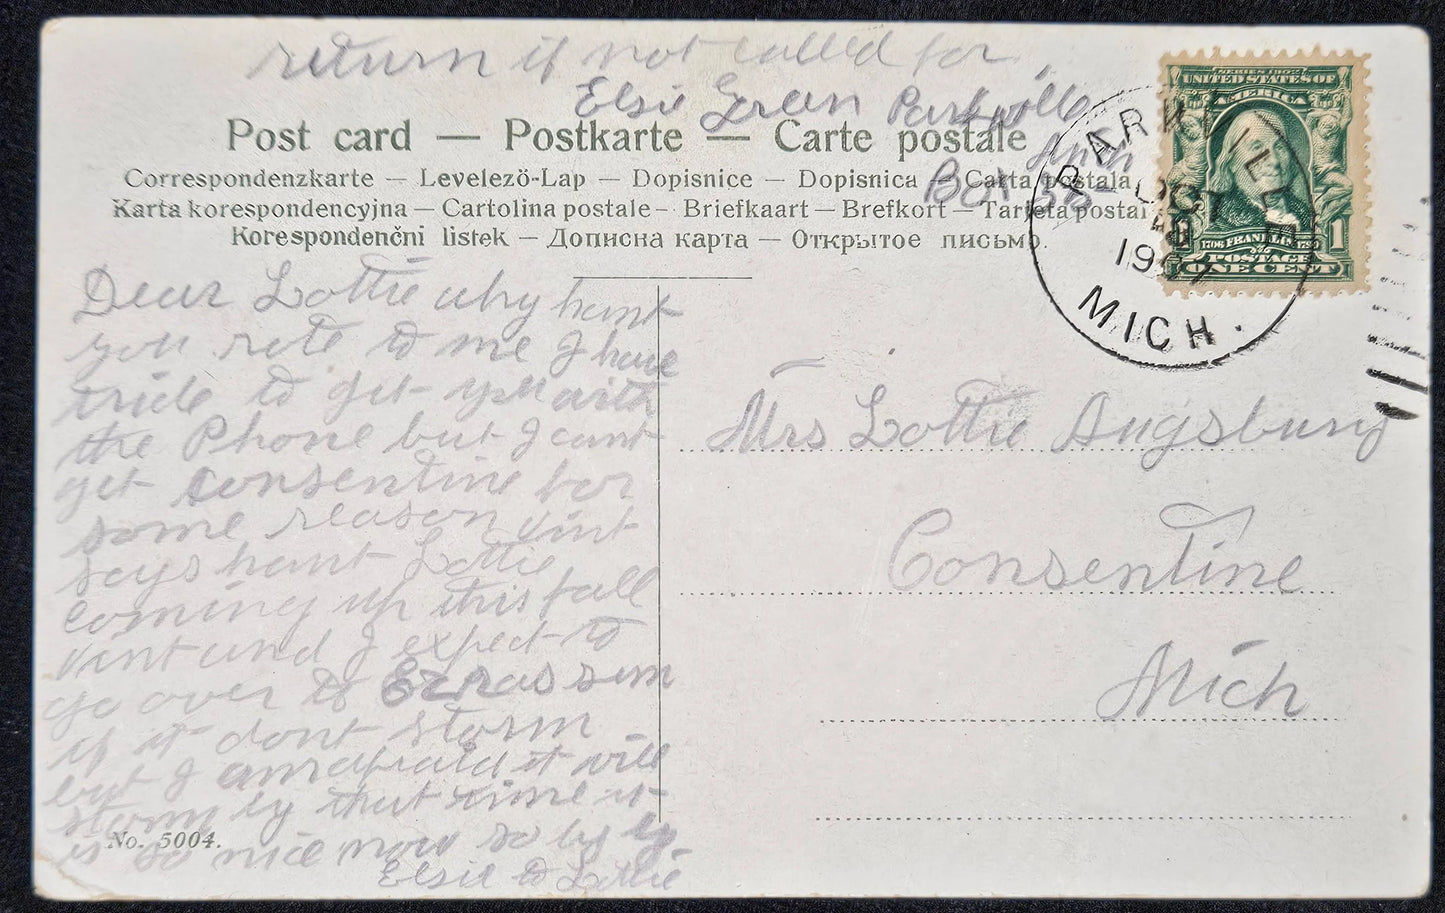 return if not called for
Elsie Eran Parkville
Mich
Box 53
Post card — Postkarte — Carte postale
Correspondenzkarte — Levelezö-Lap — Dopisnice — Dopisnica — Carta postala
Karta korespondencyjna — Cartolina postale — Briefkaart — Brefkort — Tarjeta postal
Korespondenčni listek — Дописна карта — Открытое письмо.
SERIES 1902
UNITED STATES OF
AMERICA
1706 FRANKLIN 1790
POSTAGE
ONE CENT
1
PARKVILLE
OCT
190
MICH.
Dear Lottie why hant
you rote to me I have
tride to get you with
the Phone but I cant
get Consentine for
some reason vint
says hant Lottie
coming up this fall
vint and I expect to
go over to Ezras sun
if it dont storm
but I am afraid it will
storm by that time it
is so nice now so by by
Elsie to Lottie
Mrs Lottie Augsbury
Consentine
Mich
No. 5004.